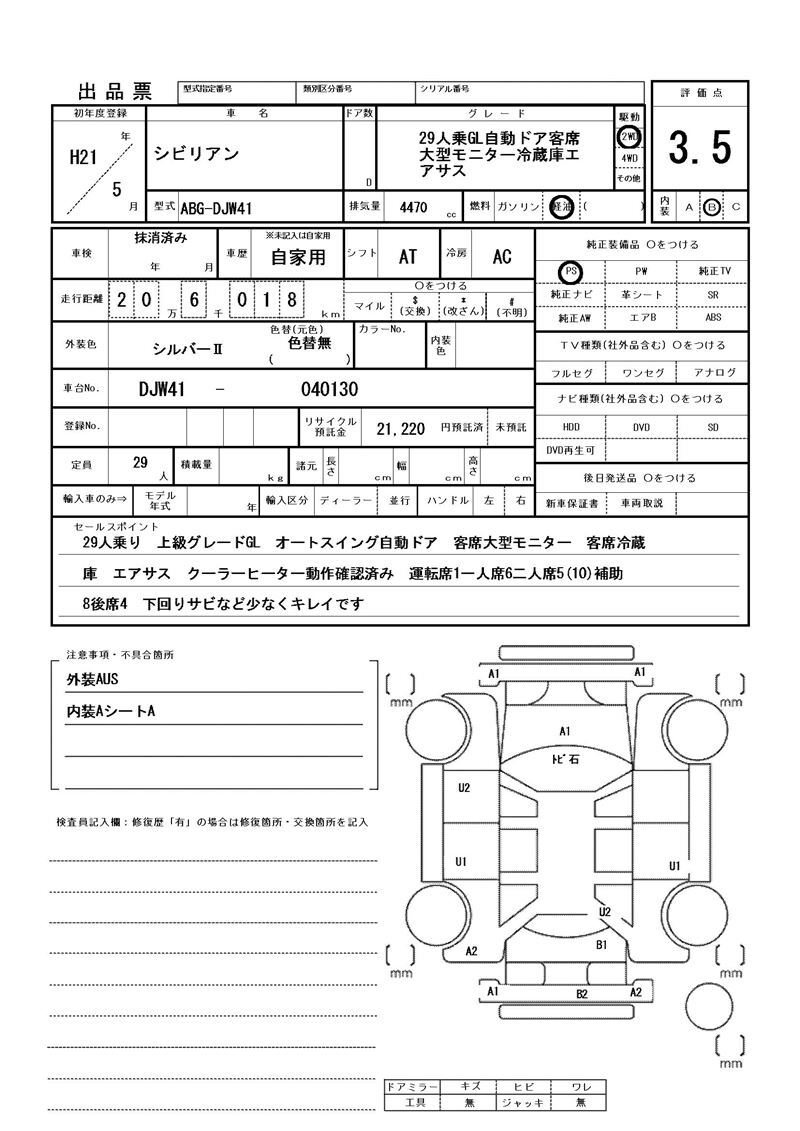 出品票
型式指定番号 類別区分番号 シリアル番号
評価点
3.5
初年度登録 車名 ドア数 グレード 駆動
H21 年 5 月
シビリアン
D
29人乗GL自動ドア客席
大型モニター冷蔵庫エ
アサス
2WD
4WD
その他
型式 ABG-DJW41 排気量 4470 cc 燃料 ガソリン 軽油 ( )
内装 A B C
車検 抹消済み 年 月 車歴 ※未記入は自家用 自家用 シフト AT 冷房 AC
純正装備品 〇をつける
PS PW 純正TV
純正ナビ 革シート SR
純正AW エアB ABS
走行距離 20 万 6 千 018 km
〇をつける
マイル $ (交換) * (改ざん) # (不明)
外装色 シルバーⅡ 色替(元色) 色替無 ( ) カラーNo. 内装色
TV種類(社外品含む) 〇をつける
フルセグ ワンセグ アナログ
車台No. DJW41 - 040130
ナビ種類(社外品含む) 〇をつける
HDD DVD SD
DVD再生可
登録No. リサイクル預託金 21,220 円預託済 未預託
定員 29 人 積載量 kg 諸元 長さ cm 幅 cm 高さ cm
後日発送品 〇をつける
新車保証書 車両取説
輸入車のみ⇒ モデル年式 年 輸入区分 ディーラー 並行 ハンドル 左 右
セールスポイント
29人乗り 上級グレードGL オートスイング自動ドア 客席大型モニター 客席冷蔵
庫 エアサス クーラーヒーター動作確認済み 運転席1一人席6二人席5(10)補助
8後席4 下回りサビなど少なくキレイです
注意事項・不具合箇所
外装AUS
内装AシートA
検査員記入欄：修復歴「有」の場合は修復箇所・交換箇所を記入
A1 A1
[ ] mm [ ] mm
A1
ﾄﾋﾞ石
U2
U1 U1
U2
A2 B1
[ ] mm [ ] mm
A1 B2 A2
[ ] mm
ドアミラー キズ ヒビ ワレ
工具 無 ジャッキ 無